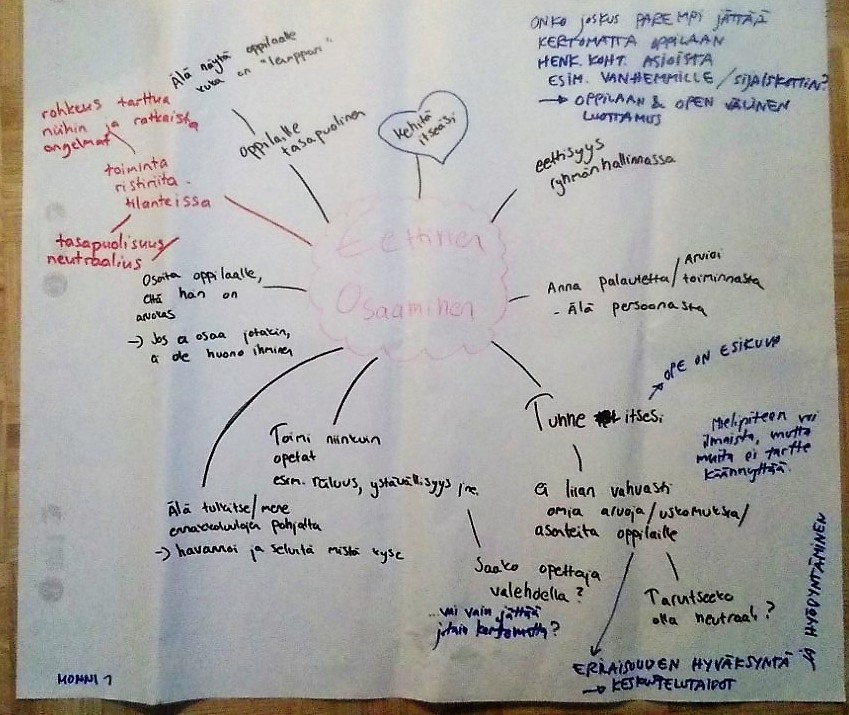 ONKO JOSKUS PAREMPI JÄTTÄÄ
KERTOMATTA OPPILAAN
HENK. KOHT. ASIOISTA
ESIM. VANHEMMILLE / SIJAISKOTIIN?
→ OPPILAAN & OPEN VÄLINEN
LUOTTAMUS
Älä näytä oppilaalle
kuka on "lemppari"
oppilaille
tasapuolinen
Kehitä
itseäsi
eettisyys
ryhmänhallinnassa
rohkeus tarttua
niihin ja ratkaista
ongelmat
toiminta
ristiriita-
tilanteissa
tasapuolisuus
neutraalius
Eettinen
Osaaminen
Osoita oppilaalle,
että hän on
arvokas
→ Jos ei osaa jotakin,
ei ole huono ihminen
Anna palautetta / Arvioi
toiminnasta
- Älä persoonasta
OPE ON ESIKUVA
Tunne itsesi
Mielipiteen voi
ilmaista, mutta
muita ei tartte
käännyttää.
Toimi niinkuin
opetat
esim. reiluus, ystävällisyys jne.
ei liian vahvasti
omia arvoja/uskomuksia/
asenteita oppilaille
Älä tulkitse/mene
ennakkoluulojen pohjalta
→ havannoi ja selvitä mistä kyse
Saako opettaja
valehdella?
...vai vain jättää
jotain kertomatta?
Tarvitseeko
olla neutraali?
ERILAISUUDEN HYVÄKSYNTÄ
JA HYÖDYNTÄMINEN
→ KESKUSTELUTAIDOT
MONNI 1